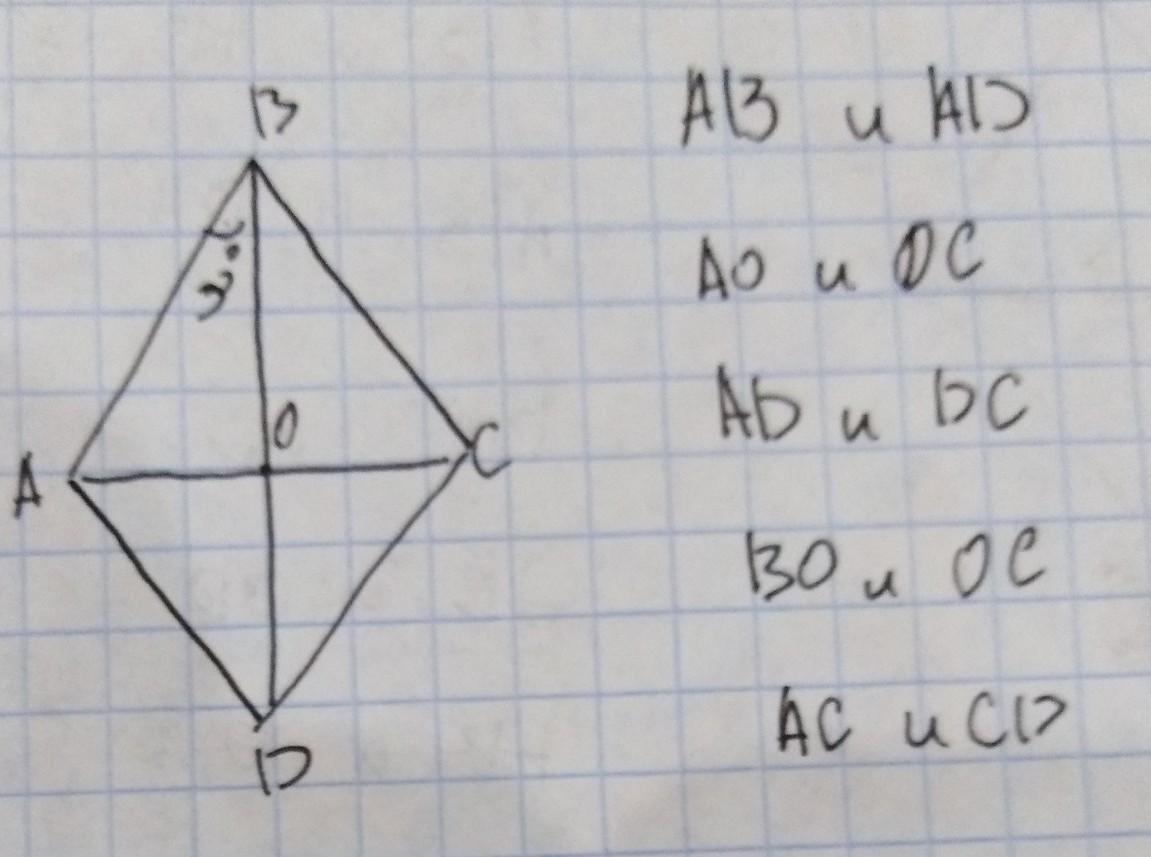 B
AB и AD
AO и OC
O
AD и DC
A
C
BO и OC
AC и CD
D